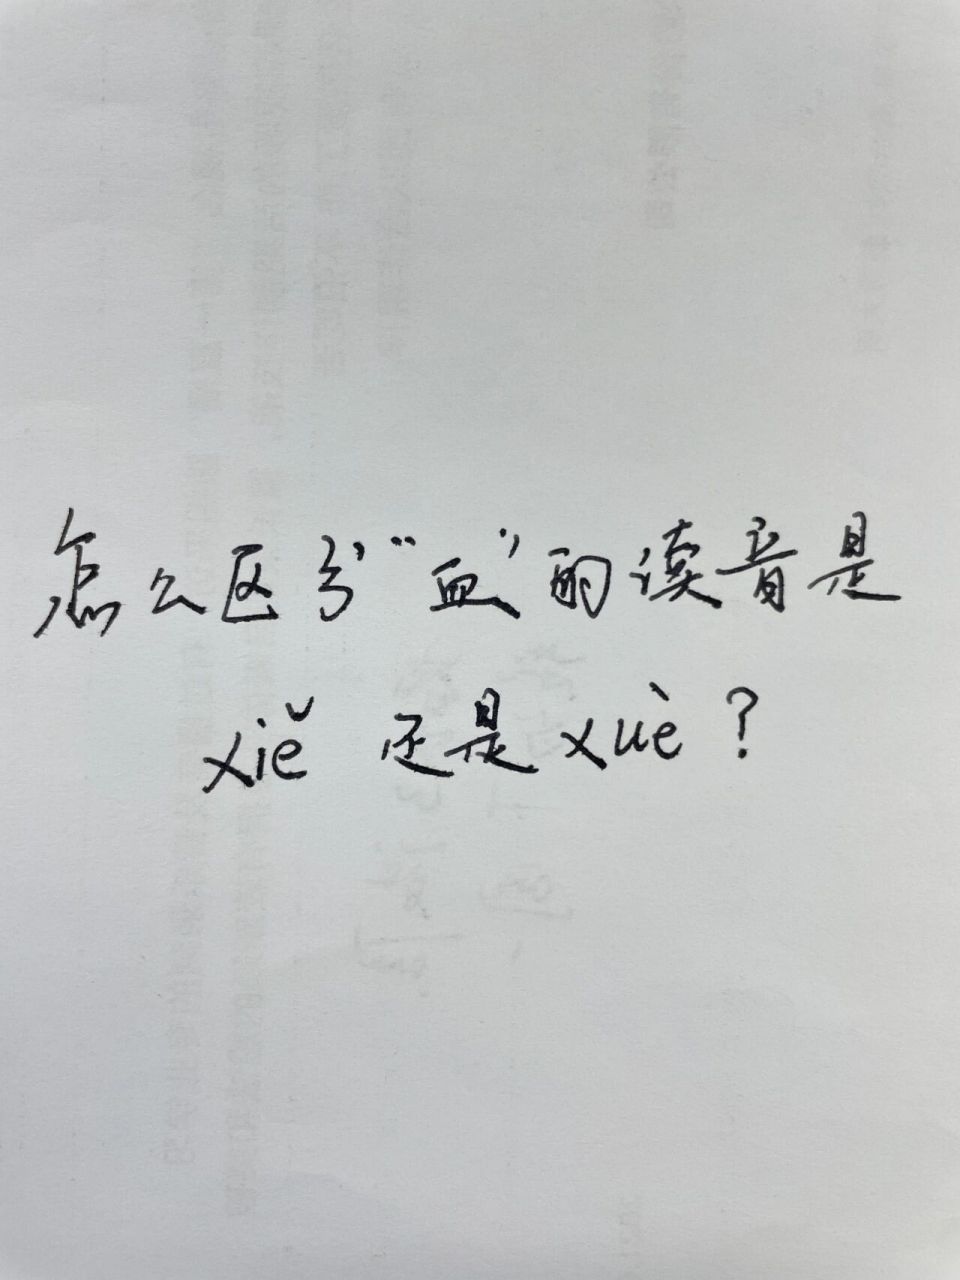 怎么区分“血”的读音是
xiě 还是 xuè？